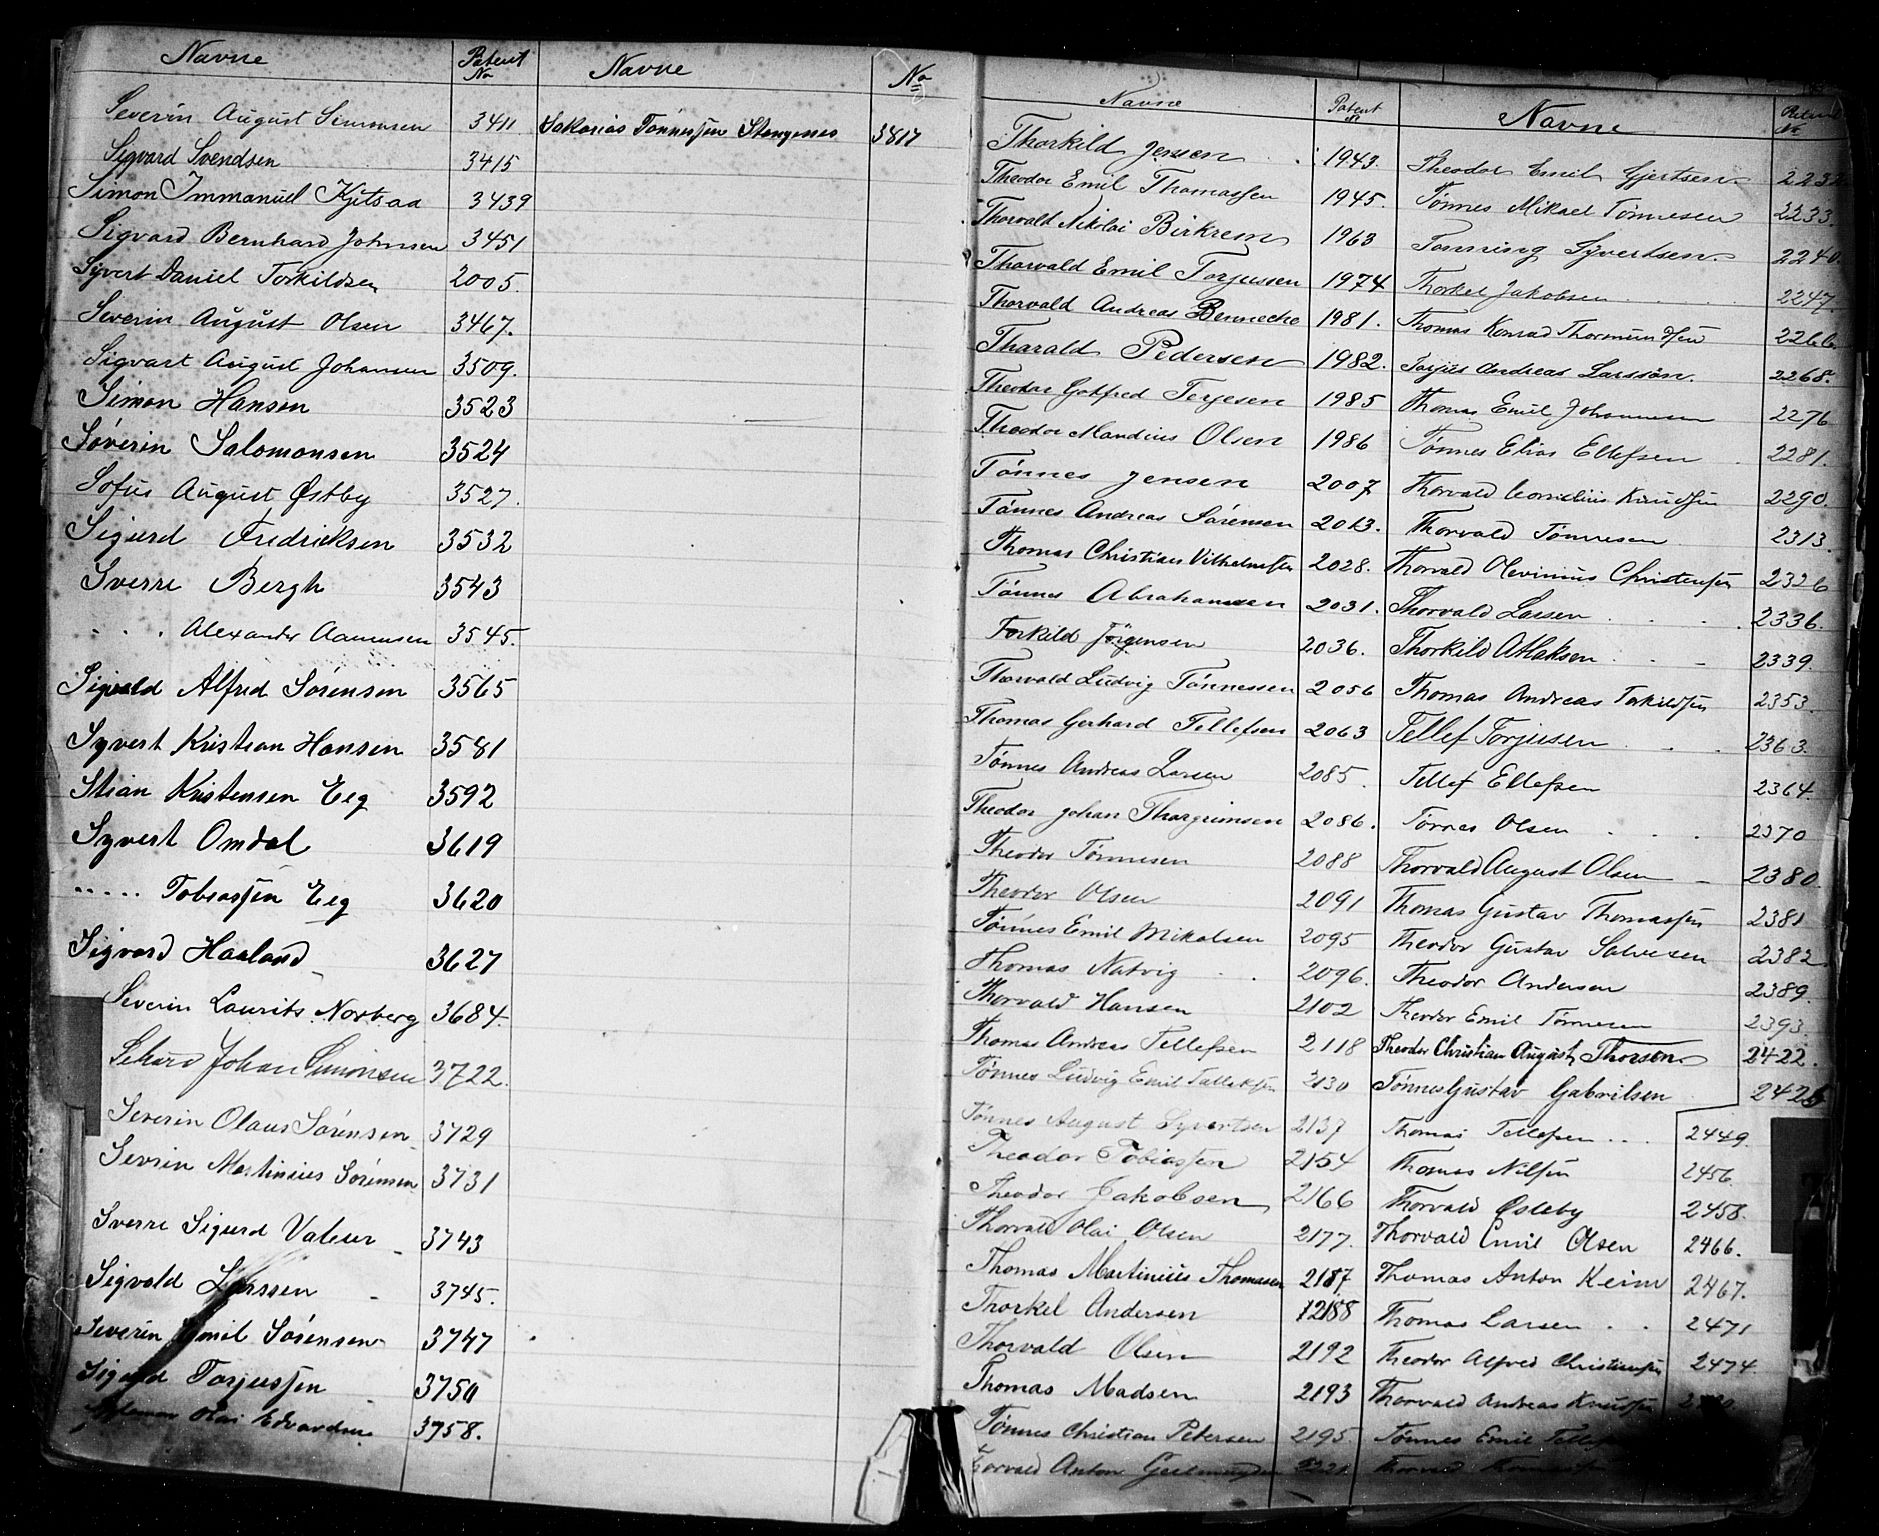 Navne Patent No
Severin August Simonsen 3411
Sigvard Svendsen 3415
Simon Immanuel Kjitsaa 3439
Sigvard Bernhard Johnsen 3451
Syvert Daniel Torkildsen 2005.
Severin August Olsen 3467.
Sigvart August Johansen 3509.
Simon Hansen 3523
Søverin Salomonsen 3524
Sofus August Østby 3527.
Sigurd Fredriksen 3532
Sverre Bergh 3543
" " " Alexander Aamunsen 3545.
Sigvald Alfred Sørensen 3565
Syvert Kristian Hansen 3581
Stian Kristensen Eeg 3592
Syvert Omdal 3619
" " " " " Tobiassen Eeg 3620
Sigvard Haaland 3627
Severin Laurits Norberg 3684.
Johan Simonsen 3722.
Severin Olaus Sørensen 3729
Sevrin Martinius Sørensen 3731
Sverre Sigurd Valeur 3743
Sigvald Larssen 3745.
Severin Emil Sørensen 3747
Sigurd Torjussen 3750
Olai Edvardsen 3758.
Navne No
Sakarias Tønnessen Stangenes 3817
Navne Patent No
Thorkild Jensen 1943.
Theodor Emil Thomassen 1945.
Thorvald Nikolai Birkrem 1963
Thorvald Emil Torjussen 1974
Thorvald Andreas Bennecke 1981.
Tharald Pedersen 1982.
Theodor Gotfred Terjesen 1985
Theodor Mandius Olsen 1986
Tønnes Jensen 2007
Tønnes Andreas Sørensen 2013.
Thomas Christian Vilhelmsen 2028.
Tønnes Abrahamsen 2031.
Torkild Jörgensen 2036.
Thorvald Ludvig Tönnessen 2056
Thomas Gerhard Tellefsen 2063
Tønnes Andreas Larsen 2085.
Theodor Johan Thorgrimsen 2086.
Theodor Tønnesen 2088
Theodor Olsen 2091
Tønnes Emil Mikalsen 2095
Thomas Natvig 2096.
Thorvald Hansen 2102
Thomas Andreas Tellefsen 2118
Tønnes Ludvig Emil Tallaksen 2130
Tønnes August Syvertsen 2137
Theodor Tobiassen 2154
Theodor Jakobsen 2166
Thorvald Olai Olsen 2177.
Thomas Martinius Thomasen 2187
Thorkel Andersen 2188
Thorvald Olsen 2192
Thomas Madsen 2193
Tønnes Christian Petersen 2195.
Thorvald Anton
Navne Patent No
Theodor Emil Gjertsen 2232
Tønnes Mikael Tønnesen 2233.
Tønning Syvertsen 2240.
Thorkel Jakobsen 2247.
Thomas Konrad Thormundsen 2266.
Torjus Andreas Larssøn. 2268.
Thomas Emil Johannesen 2276
Tønnes Elias Ellefsen 2281.
Thorvald Cornelius Knudsen 2290.
Thorvald Tønnesen 2313.
Thorvald Olevinius Christensen 2326
Thorvald Larsen 2336.
Thorkild Atlaksen 2339.
Thomas Andreas Torkildsen 2353.
Tellef Torjusen 2363.
Tellef Ellefsen 2364.
Tønnes Olsen 2370
Thorvald August Olsen 2380.
Thomas Gustav Thomassen 2381
Theodor Gustav Salvesen 2382.
Theodor Andersen 2389.
Theodor Emil Tønnesen 2393.
Theodor Christian August Thorsen 2422.
Tønnes Gustav Gabrilsen 2425
Thomas Tellefsen 2449.
Thomas Nilsen 2456.
Thorvald Østeby 2458.
Thorvald Emil Olsen 2466.
Thomas Anton Keim 2467.
Thomas Larsen 2471
Theodor Alfred Christiansen 2474.
Thorvald Andreas Knudsen
Tønnes Emil
Thorvald